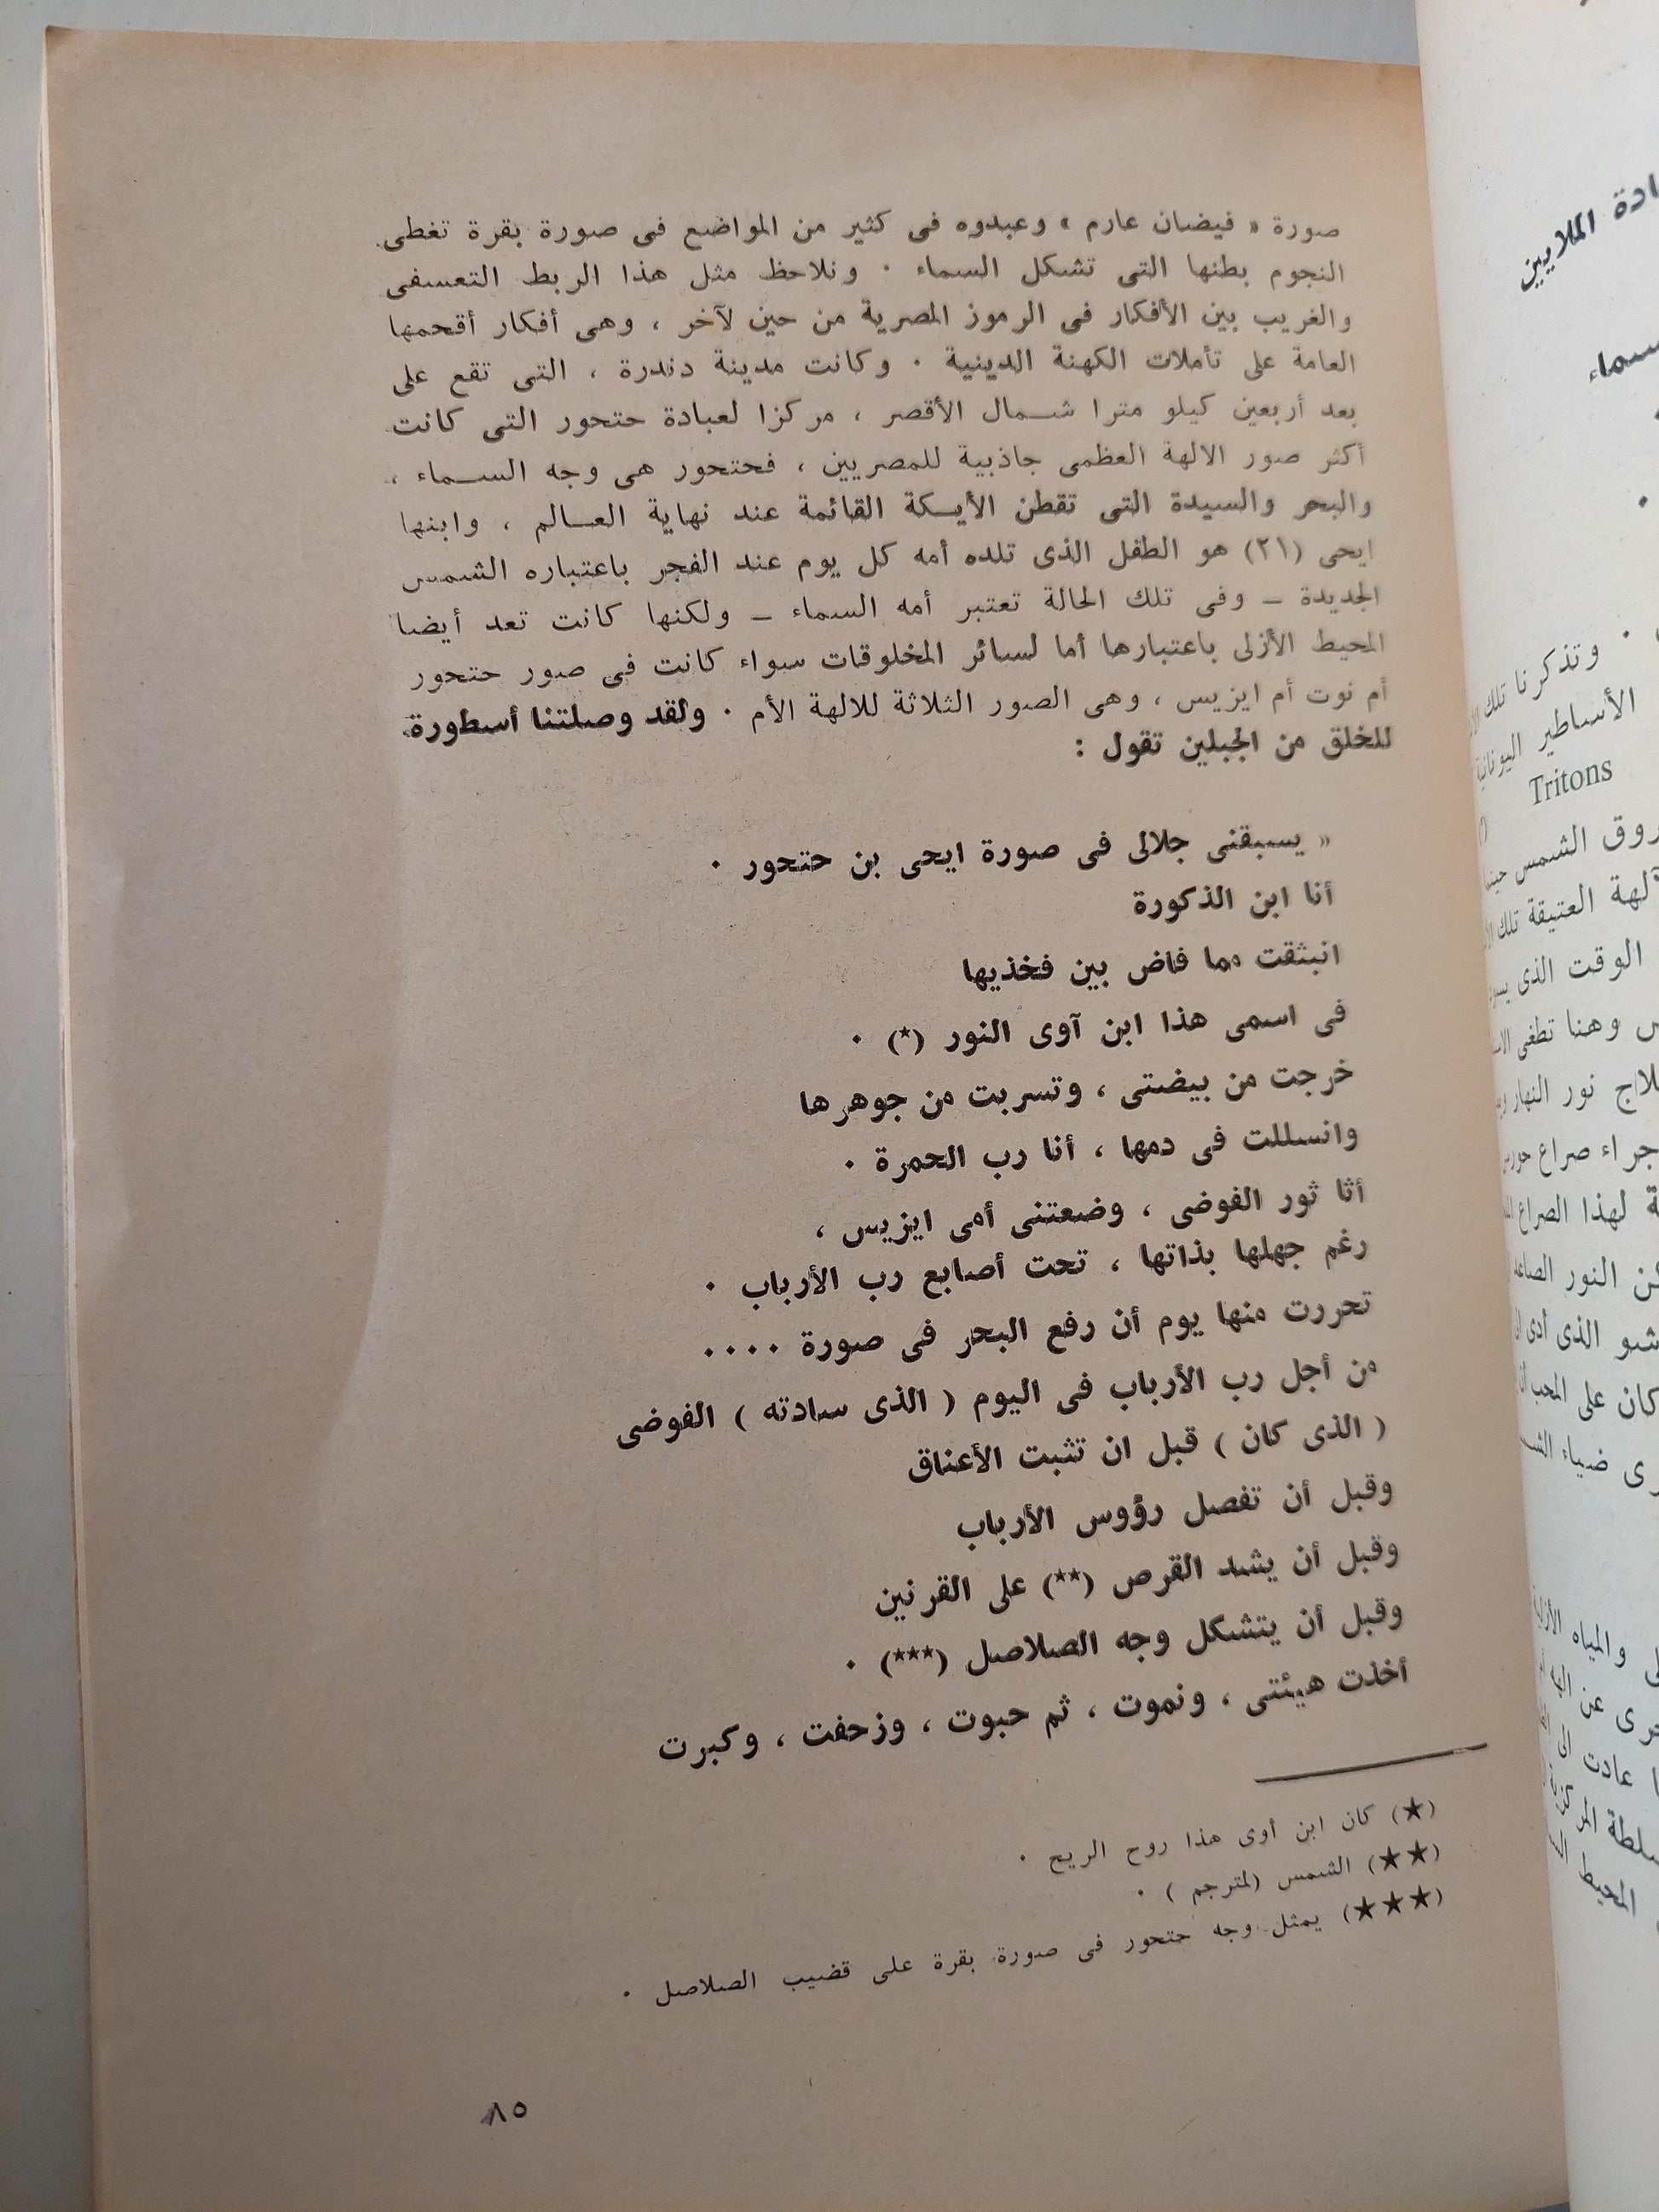 صورة « فيضان عارم » وعبدوه فى كثير من المواضع فى صورة بقرة تغطى
النجوم بطنها التى تشكل السماء ٠ ونلاحظ مثل هذا الربط التعسفى
والغريب بين الأفكار فى الرموز المصرية من حين لآخر ، وهى أفكار أقحمتها
العامة على تأملات الكهنة الدينية ٠ وكانت مدينة دندرة ، التى تقع على
بعد أربعين كيلو مترا شـمال الأقصر ، مركزا لعبادة حتحور التى كانت
أكثر صور الالهة العظمى جاذبية للمصريين ، فحتحور هى وجه السـماء ،
والبحر والسيدة التى تقطن الأيـكة القائمة عند نهاية العـالم ، وابنها
ايحى (٢١) هو الطفل الذى تلده أمه كل يوم عند الفجر باعتباره الشمس
الجديدة – وفى تلك الحالة تعتبر أمه السماء – ولكنها كانت تعد أيضا
المحيط الأزلى باعتبارها أما لسائر المخلوقات سواء كانت فى صور حتحور
أم نوت أم ايزيس ، وهى الصور الثلاثة للالهة الأم ٠ ولقد وصلتنا أسطورة
للخلق من الجبلين تقول :
« يسبقنى جلالى فى صورة ايحى بن حتحور ٠
أنا ابن الذكورة
انبثقت مما فاض بين فخذيها
فى اسمى هذا ابن آوى النور (*) ٠
خرجت من بيضتى ، وتسربت من جوهرها
وانسللت فى دمها ، أنا رب الحمرة ٠
أنا ثور الفوضى ، وضعتنى أمى ايزيس ،
رغم جهلها بذاتها ، تحت أصابع رب الأرباب ٠
تحررت منها يوم أن رفع البحر فى صورة ٠٠٠٠
من أجل رب الأرباب فى اليوم ( الذى سادته ) الفوضى
( الذى كان ) قبل ان تثبت الأعناق
وقبل أن تفصل رؤوس الأرباب
وقبل أن يشد القرص (**) على القرنين
وقبل أن يتشكل وجه الصلاصل (***) ٠
أخذت هيئتى ، ونموت ، ثم حبوت ، وزحفت ، وكبرت
(★) كان ابن أوى هذا روح الريح ٠
(★★) الشمس (لمترجم ) ٠
(★★★) يمثل وجه حتحور فى صورة بقرة على قضيب الصلاصل ٠
٨٥
ادة الملايين
سماء
٠ وتذكرنا تلك
الأساطير اليونانية
Tritons
روق الشمس
آلهة العتيقة تلك
الوقت الذى
وهنا تطغى
نور النهار
جراء صراع
لهذا الصراع
النور
شو الذى أدى
كان على المحب
ضياء
والمياه
عن
عادت
المحيط